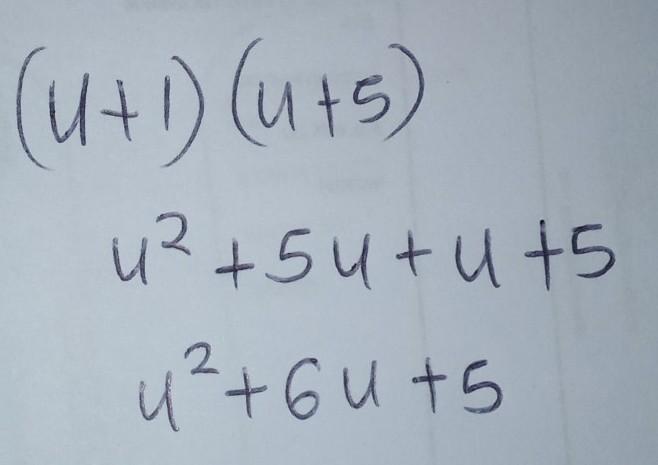 (u+1)(u+5)
u²+5u+u+5
u²+6u+5